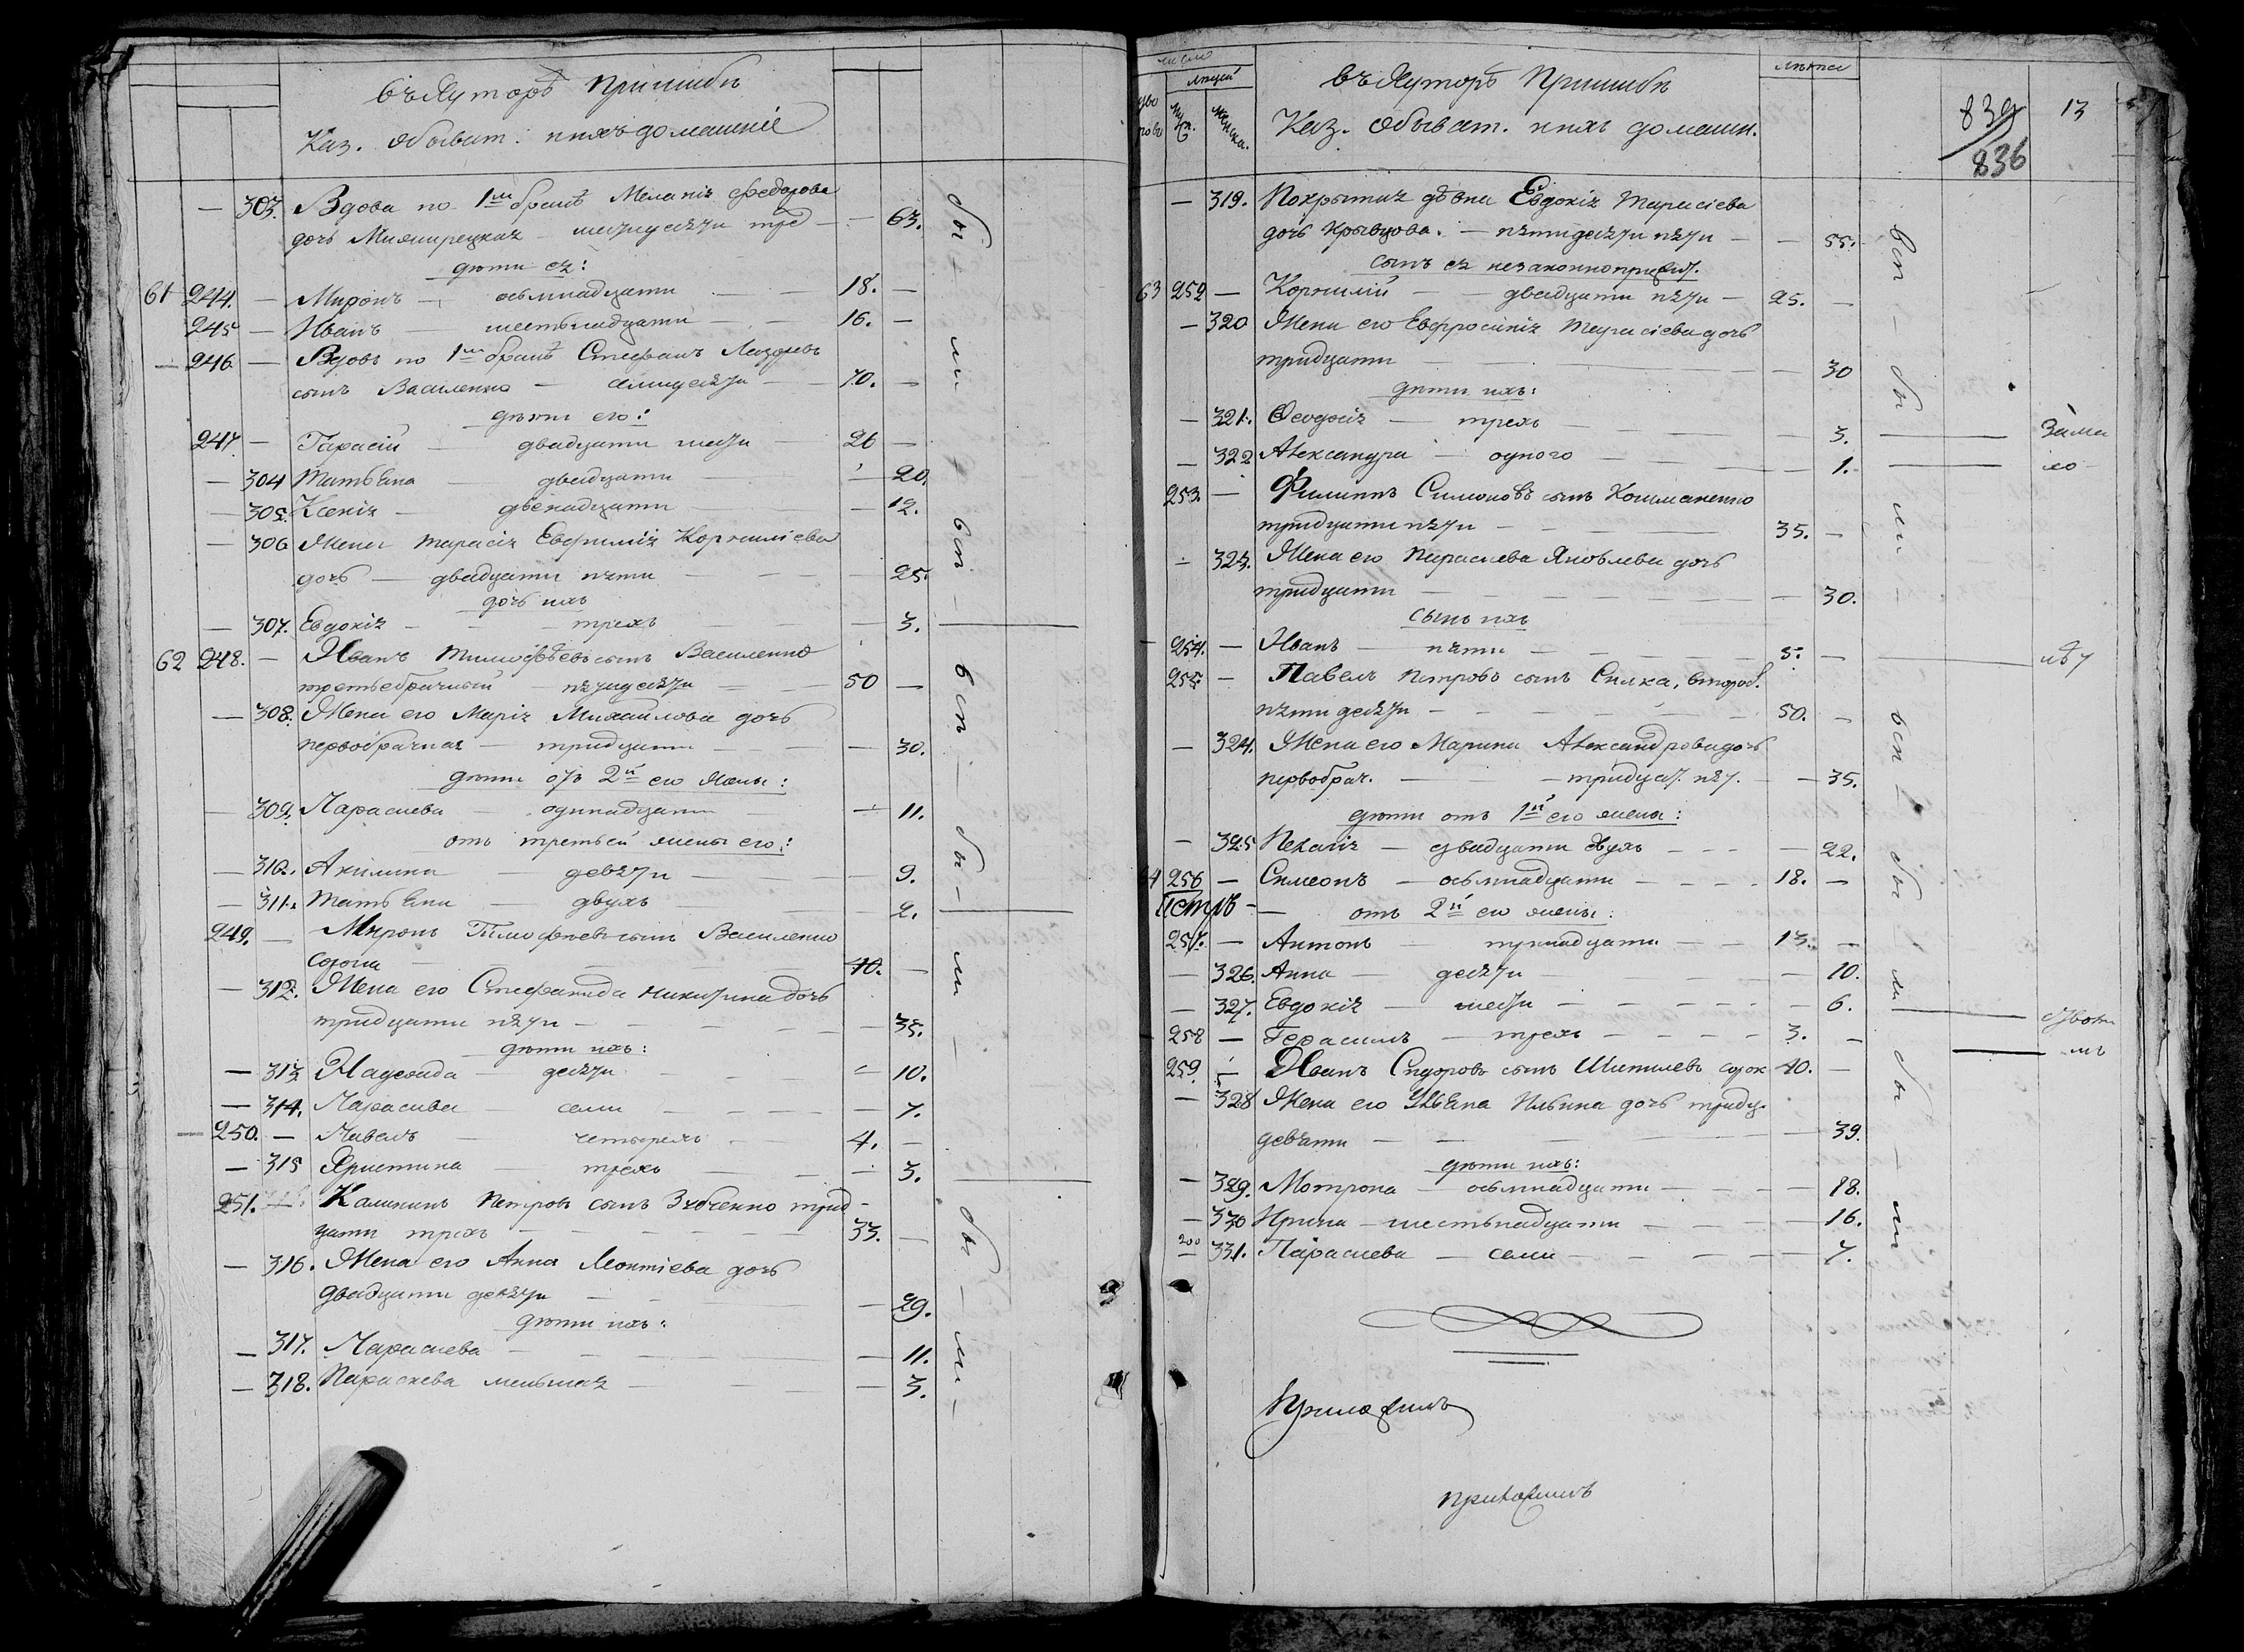 въ Хуторѣ Пришибѣ
Каз. Обыват: и ихъ домашніе
— 303. Вдова по 1мъ бракѣ Меланія Федорова
дочь шестдесяти трр — 63.
дѣти ея:
61 244. — Миронъ — осьмнадцати — 18. —
245 — Иванъ — шестьнадцати — 16. —
— 246 — Вдовъ по 1мъ бракѣ Стефанъ Лазаревъ
сынъ Василенко — семидесяти — 70. —
дѣти его:
247. — Тарасій — двадцати шести — 26 —
— 304 Татьяна — двадцати — 20.
— 305. Ксенія — двенадцати — 12.
— 306 Жена Тарасія Евфимія Корниліева
дочь — двадцати пяти — 25.
дочь ихъ
— 307. Евдокія — трехъ — 3.
62 248. — Иванъ Тимофѣевъ сынъ Василенко
третьебрачный — пятидесяти — 50 —
— 308. Жена его Марія Михайлова дочь
первобрачная — тридцати — 30.
дѣти отъ 2й его жены:
— 309. Параскева — одинадцати — 11.
отъ третьей жены его:
— 310. Акилина — девяти — 9.
— 311. Татьяна — двухъ — 2.
249. — Миронъ Тимофѣевъ сынъ Василенко
сорока — 40. —
— 312. Жена его Стефанида Никитина дочь
тридцати пяти — 35.
дѣти ихъ:
— 313 Надежда — десяти — 10.
— 314. Параскева — семи — 7.
— 250. — Павелъ — четырехъ — 4. —
— 315 Христина — трехъ — 3.
251. — Калиникъ Петровъ сынъ Зубченко трид-
цати трехъ — 33. —
— 316. Жена его Анна Леонтіева дочь
двадцати девяти — 29.
дѣти ихъ:
— 317. Параскева — 11.
— 318. Параскева меньшая — 3.
бы — ли — всѣ — всѣ — бы — ли — бы — ли —
число
людей
дво
ровъ
муж.
женска.
въ Хуторѣ Пришибѣ
Каз. Обыват. и ихъ домашн.
лѣта
839
836
13
— 319. Покрытка дѣвка Евдокія Тарасіева
дочь Кравцова. — пятидесяти пяти — 55.
сынъ ея незаконноприжит.
63 252 — Корнилій — двадцати пяти — 25. —
— 320 Жена его Евфросинія Тарасіева дочь
тридцати — 30
дѣти ихъ:
— 321. Феодосія — трехъ — 3. — за ма
— 322 Александра — одного — 1. — ло
253. — Филиппъ Симоновъ сынъ Кошманенко
тридцати пяти — 35. —
— 323. Жена его Параскева Яковлева дочь
тридцати — 30.
сынъ ихъ
— 254. — Иванъ — пяти — 5. —
255. — Павелъ Петровъ сынъ Силка, второб.
пятидесяти — 50. —
— 324. Жена его Марина Александрова дочь
первобрач. — тридцат. пят. — 35.
дѣти отъ 1й его жены:
— 325 Пелагія — двадцати двухъ — 22.
64 256 — Симеонъ — осьмнадцати — 18. —
Петръ — отъ 2й его жены:
257. — Антонъ — тринадцати — 13. —
— 326. Анна — десяти — 10.
— 327. Евдокія — шести — 6.
258 — Герасимъ — трехъ — 3. —
259. — Иванъ Сидоровъ сынъ Шитилевъ сорок 40. —
— 328 Жена его Ульяна Ильина дочь тридц.
девяти — 39.
дѣти ихъ:
— 329. Мотрона — осьмнадцати — 18.
— 330 Ирина — шестьнадцати — 16.
— 331. Параскева — семи — 7.
всѣ — бы — ли — всѣ — бы — ли — бы — ли